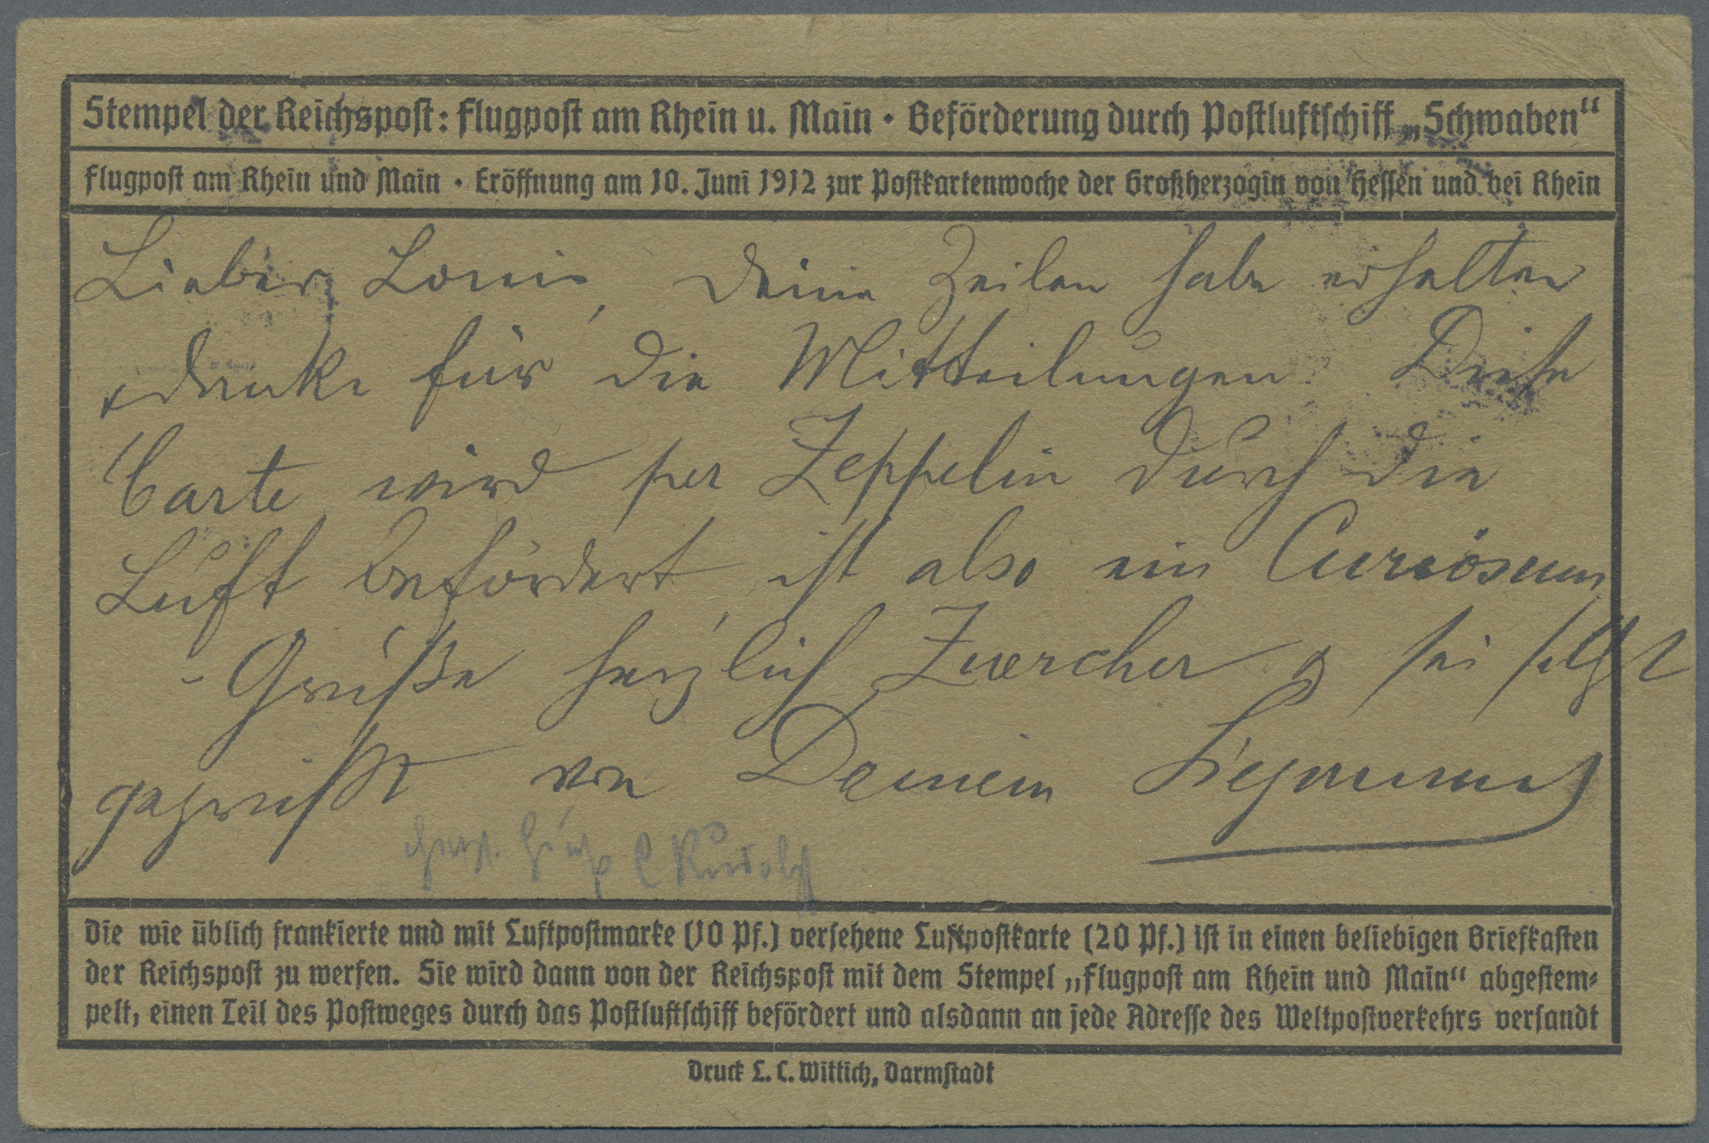 Stempel der Reichspost: Flugpost am Rhein u. Main · Beförderung durch Postluftschiff „Schwaben“
Flugpost am Rhein und Main · Eröffnung am 10. Juni 1912 zur Postkartenwoche der Großherzogin von Hessen und bei Rhein
Lieber Louis, Deine Zeilen habe erhalten
& danke für die Mitteilungen. Diese
Carte wird per Zeppelin durch die
Luft befördert, ist also ein Curiosum
- Grüße herzlich Zuercher & sei selbst
gegrüßt von Deinem
Rudolf
Die wie üblich frankierte und mit Luftpostmarke (10 Pf.) versehene Luftpostkarte (20 Pf.) ist in einen beliebigen Briefkasten
der Reichspost zu werfen. Sie wird dann von der Reichspost mit dem Stempel „Flugpost am Rhein und Main“ abgestem-
pelt, einen Teil des Postweges durch das Postluftschiff befördert und alsdann an jede Adresse des Weltpostverkehrs versandt
Druck L. C. Wittich, Darmstadt